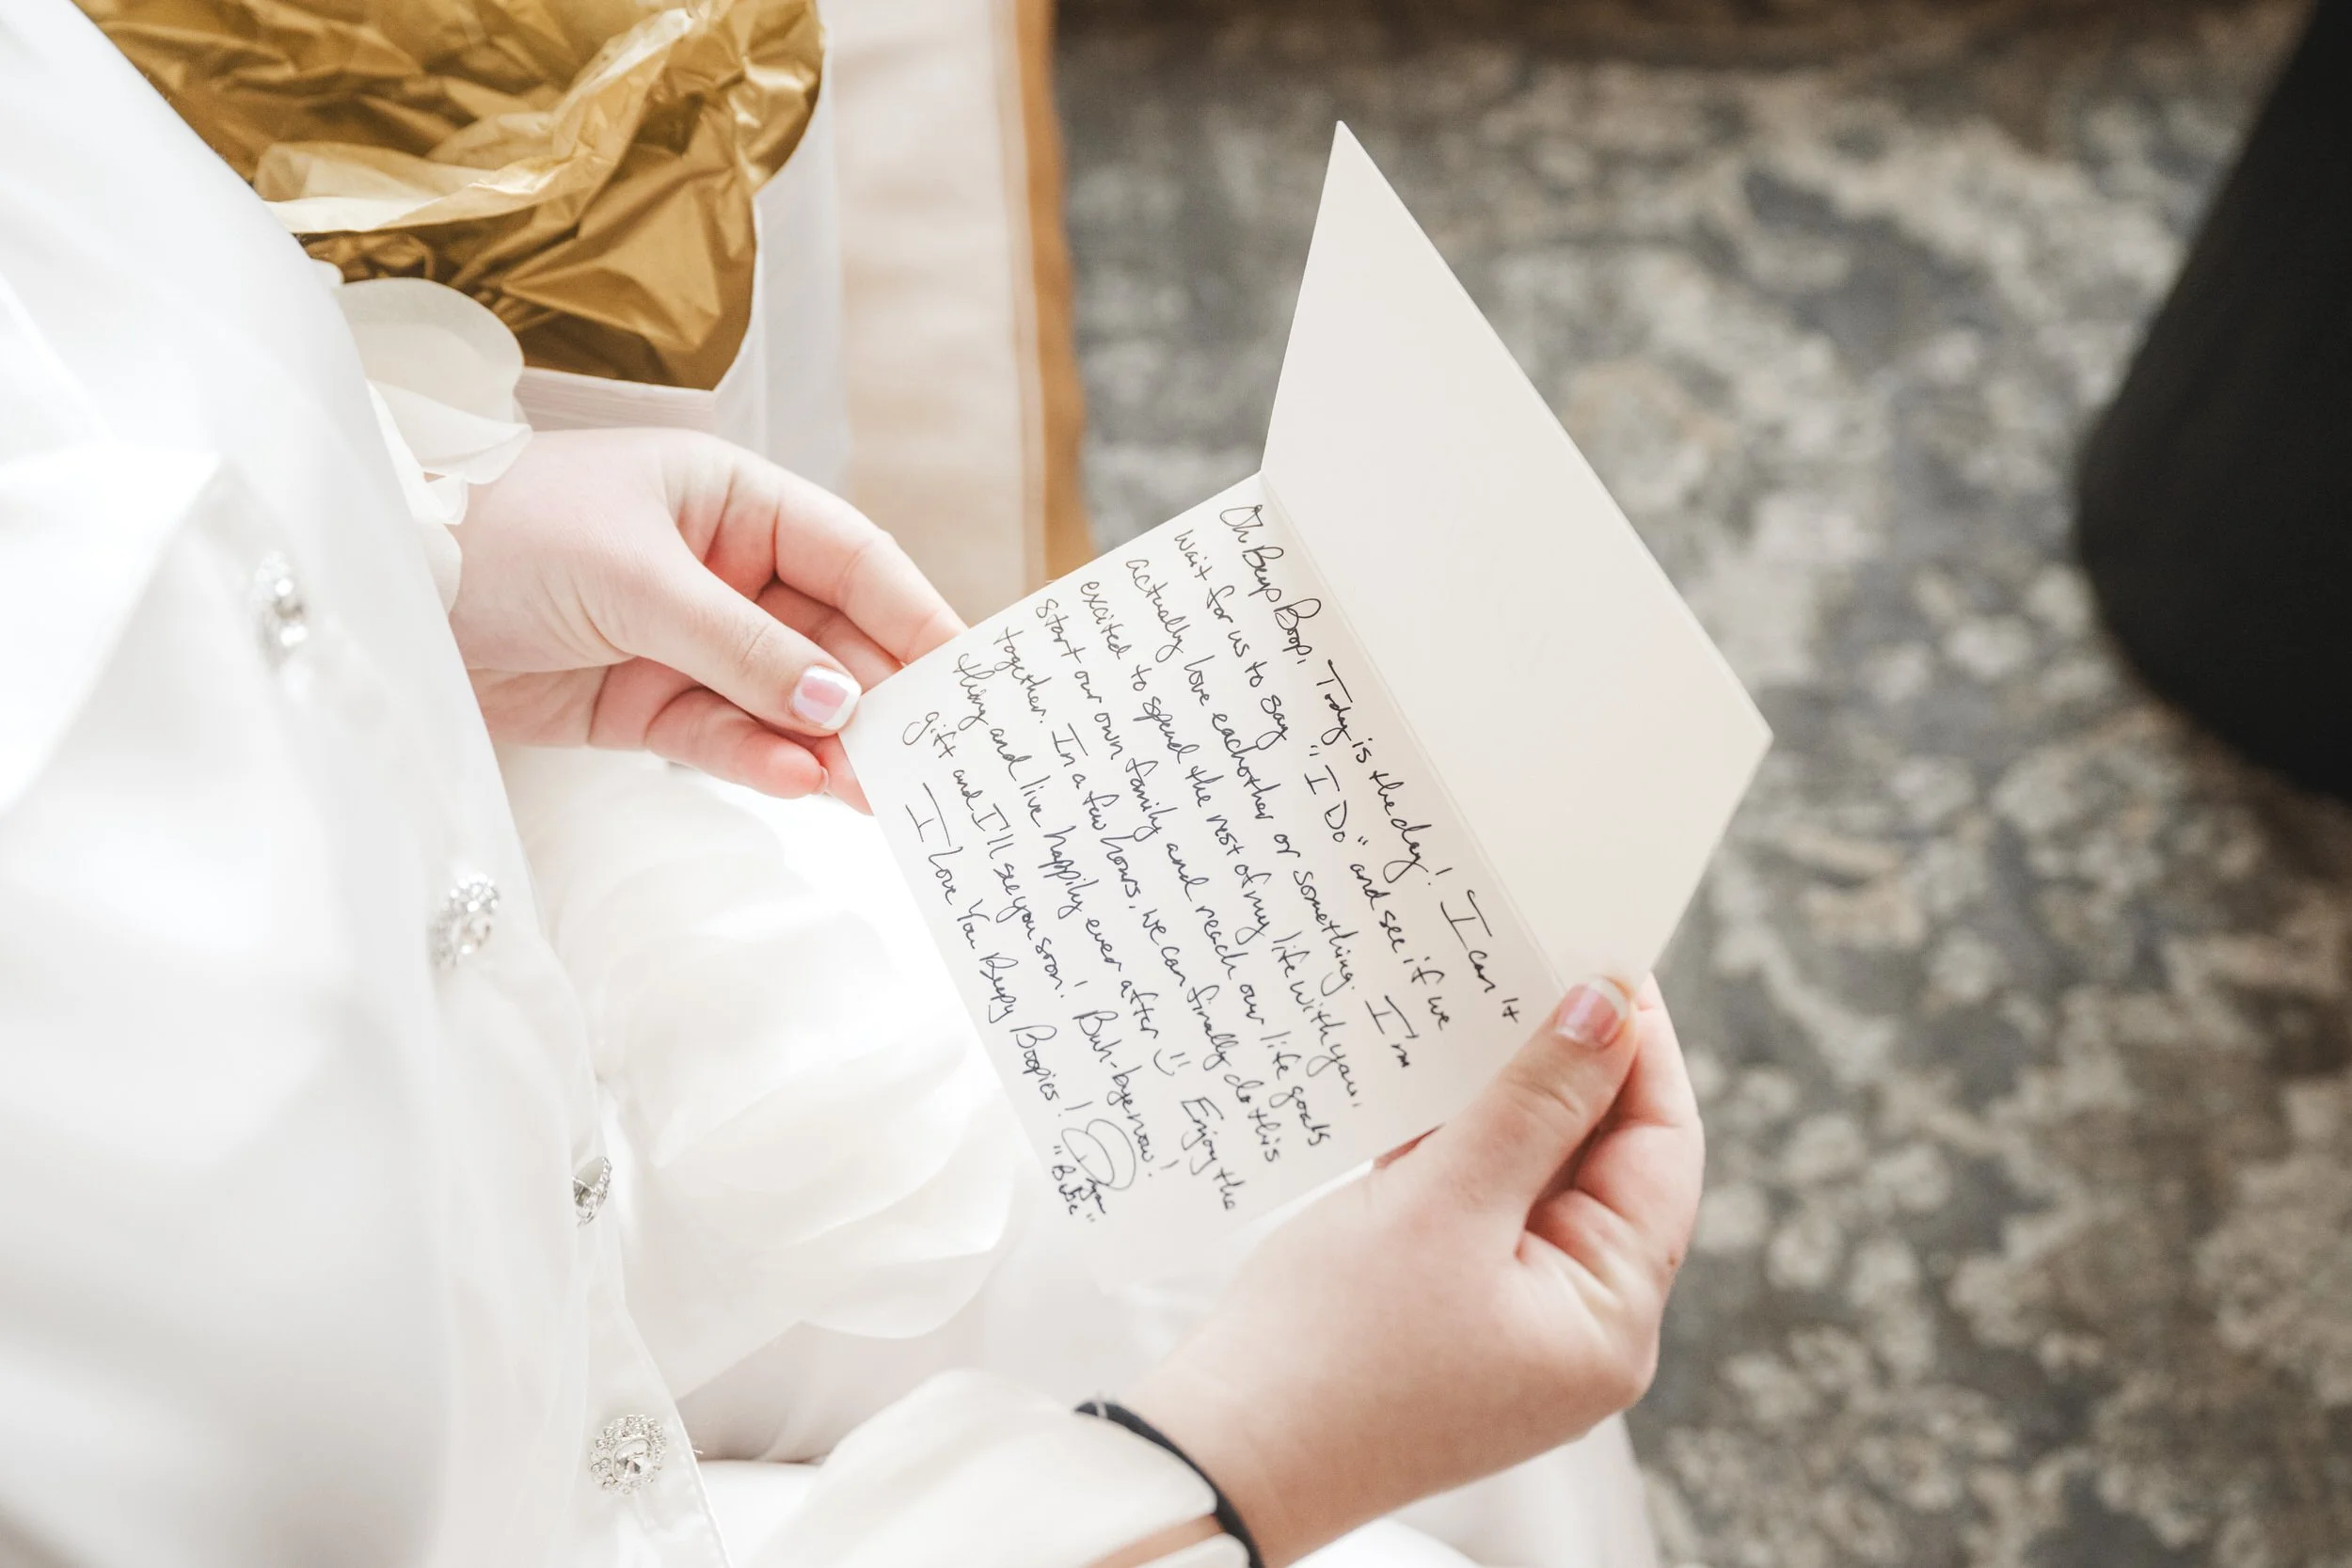 Oh Beep Boop, Today is the day! I can't
wait for us to say "I Do" and see if we
actually love eachother or something. I'm
excited to spend the rest of my life with you,
start our own family and reach our life goals
together. In a few hours, we can finally do this
thing and live happily ever after :) Enjoy the
gift and I'll see you soon! Buh-bye now!
I Love You Beepy Boopies!
"Babe"